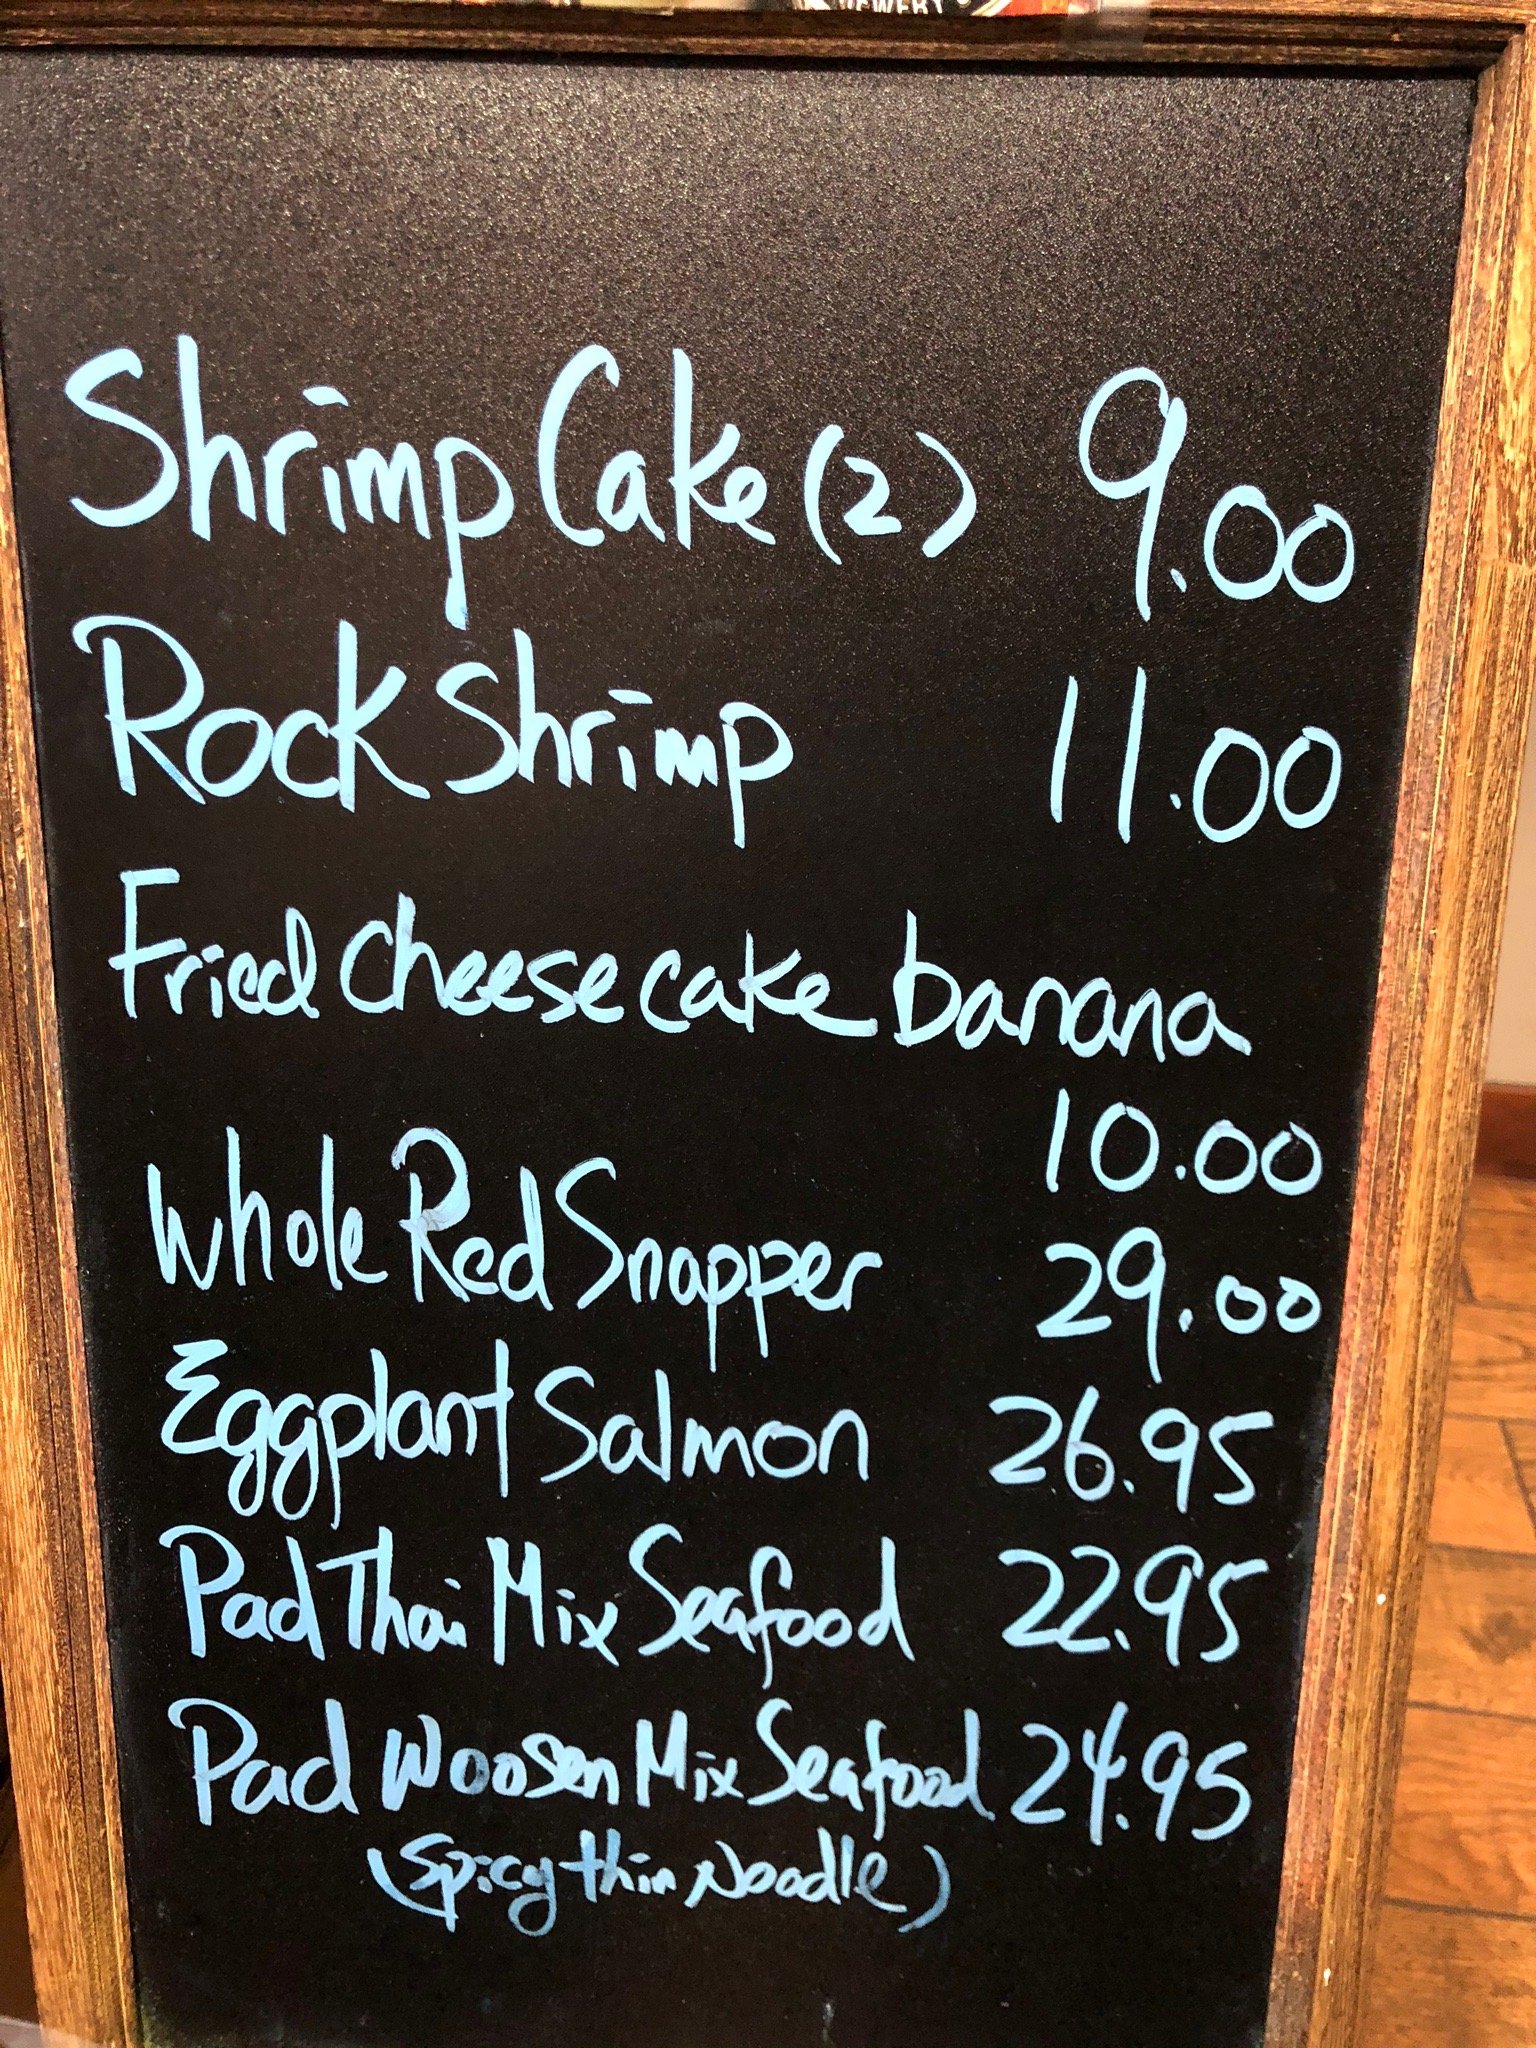 Shrimp Cake (2) 9.00
Rock Shrimp 11.00
Fried cheese cake banana
10.00
Whole Red Snapper 29.00
Eggplant Salmon 26.95
Pad Thai Mix Seafood 22.95
Pad Woosen Mix Seafood 24.95
(Spicy thin Noodle)